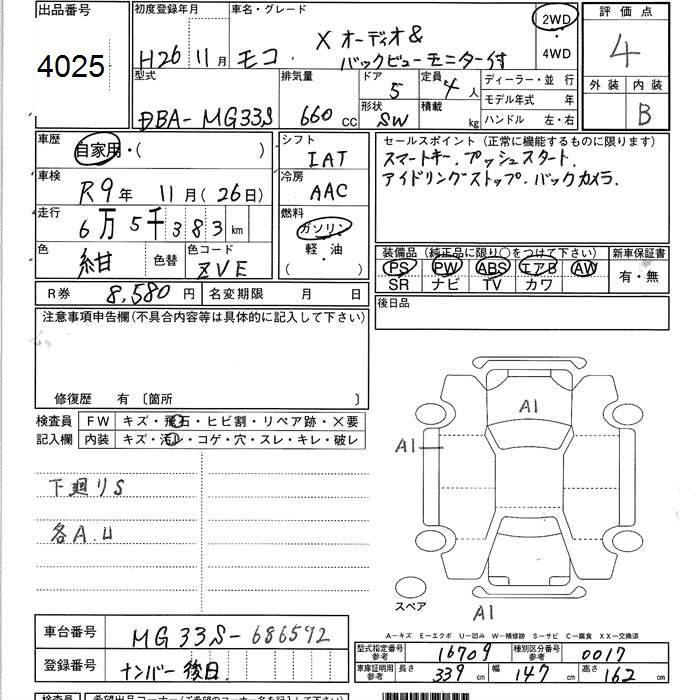 出品番号
4025
初度登録年月
H26 11月
車名・グレード
モコ X オーディオ&
バックビューモニター付
2WD
・
4WD
評価点
4
外装 内装
B
型式
DBA-MG33S
排気量
660 CC
ドア
5
形状
SW
定員
4人
積載
kg
ディーラー・並 行
モデル年式 年
ハンドル 左・右
車歴
自家用・( )
車検
R9年 11月(26日)
走行
6万5千383 km
色
紺
色替
色コード
ZVE
シフト
IAT
冷房
AAC
燃料
ガソリン
軽・油
( )
セールスポイント(正常に機能するものに限ります)
スマートキー.プッシュスタート.
アイドリングストップ.バックカメラ.
装備品(純正品に限り○をつけて下さい)
PS PW ABS エアB AW
SR ナビ TV カワ
新車保証書
有・無
R券 8,580円
名変期限 月 日
後日品
注意事項申告欄(不具合内容等は具体的に記入して下さい)
修復歴 有〔箇所 〕
検査員
記入欄
FW キズ・飛石・ヒビ割・リペア跡・X要
内装 キズ・汚レ・コゲ・穴・スレ・キレ・破レ
下廻りS
各A.U
A1
A1
スペア
A1
A-キズ E-エクボ U-凹み W-補修跡 S-サビ C-腐食 XX-交換済
車台番号
MG33S-686592
登録番号
ナンバー後日
型式指定番号
参考
16709
種別区分番号
参考
0017
車庫証明用
参考
長さ
339 cm
幅
147 cm
高さ
162 cm
検査員
希望出品コーナー